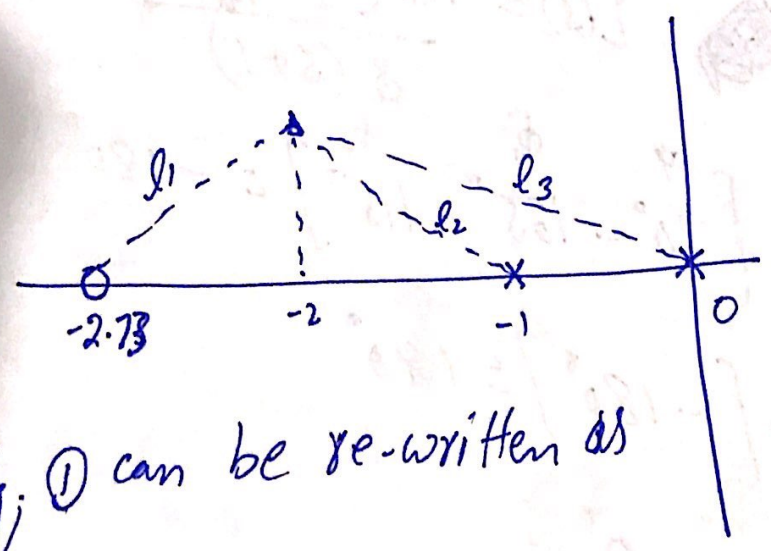 l1
l3
l2
-2.73
-2
-1
0
; ① can be re-written as